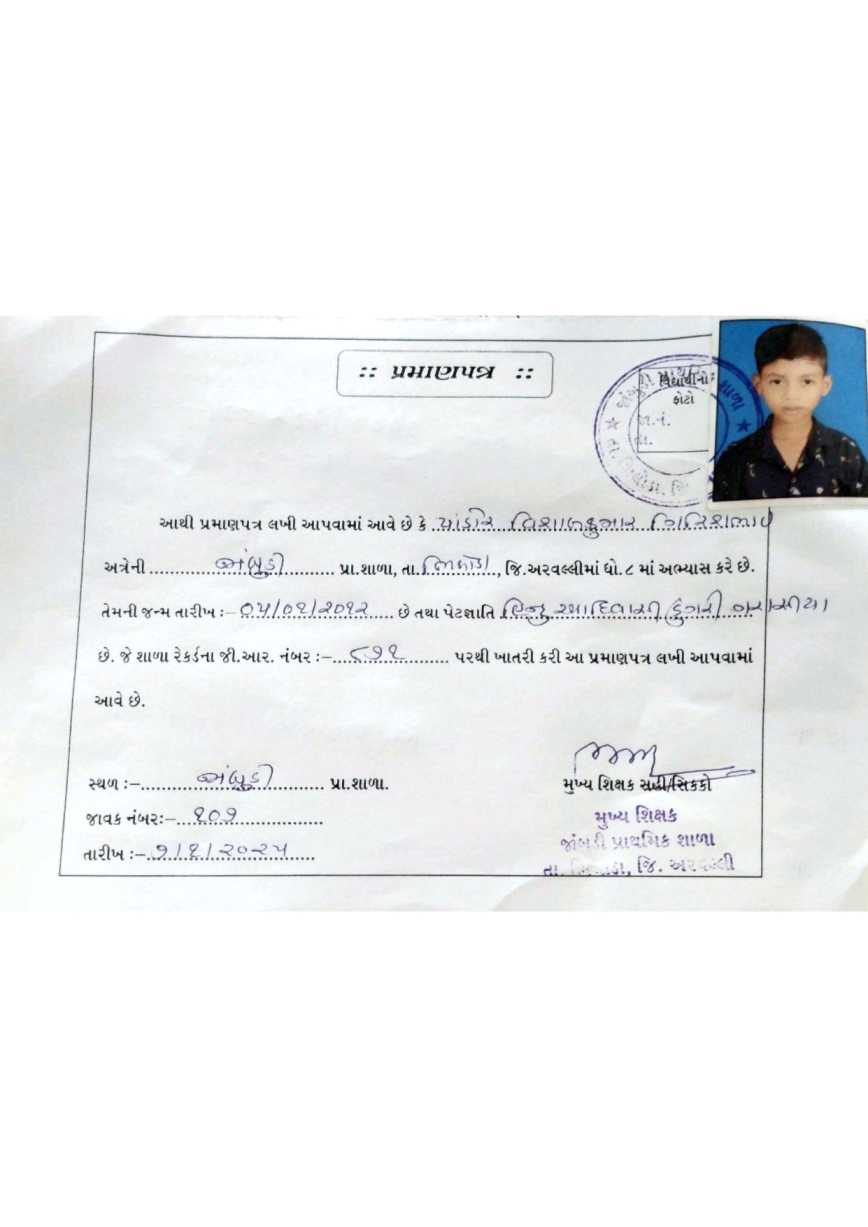 :: પ્રમાણપત્ર ::
વિદ્યાર્થીનો
ફોટો
આથી પ્રમાણપત્ર લખી આપવામાં આવે છે કે પાંડોર વિશાલકુમાર
અત્રેની જાંબુડી પ્રા.શાળા, તા. ભિલોડા, જિ.અરવલ્લીમાં ધો.૮ માં અભ્યાસ કરે છે.
તેમની જન્મ તારીખ :– ૦૫/૦૧/૨૦૧૨ છે તથા પેટાજ્ઞાતિ હિન્દુ આદિવાસી ડુંગરી ગરાસીયા
છે. જે શાળા રેકર્ડના જી.આર. નંબર :– ૮૭૧ પરથી ખાતરી કરી આ પ્રમાણપત્ર લખી આપવામાં
આવે છે.
સ્થળ :– જાંબુડી પ્રા.શાળા.
મુખ્ય શિક્ષક સહી/સિક્કો
જાવક નંબર:– ૧૦૭
મુખ્ય શિક્ષક
જાંબુડી પ્રાથમિક શાળા
તારીખ :– ૭/૧/૨૦૨૫
તા. ભિલોડા, જિ. અરવલ્લી